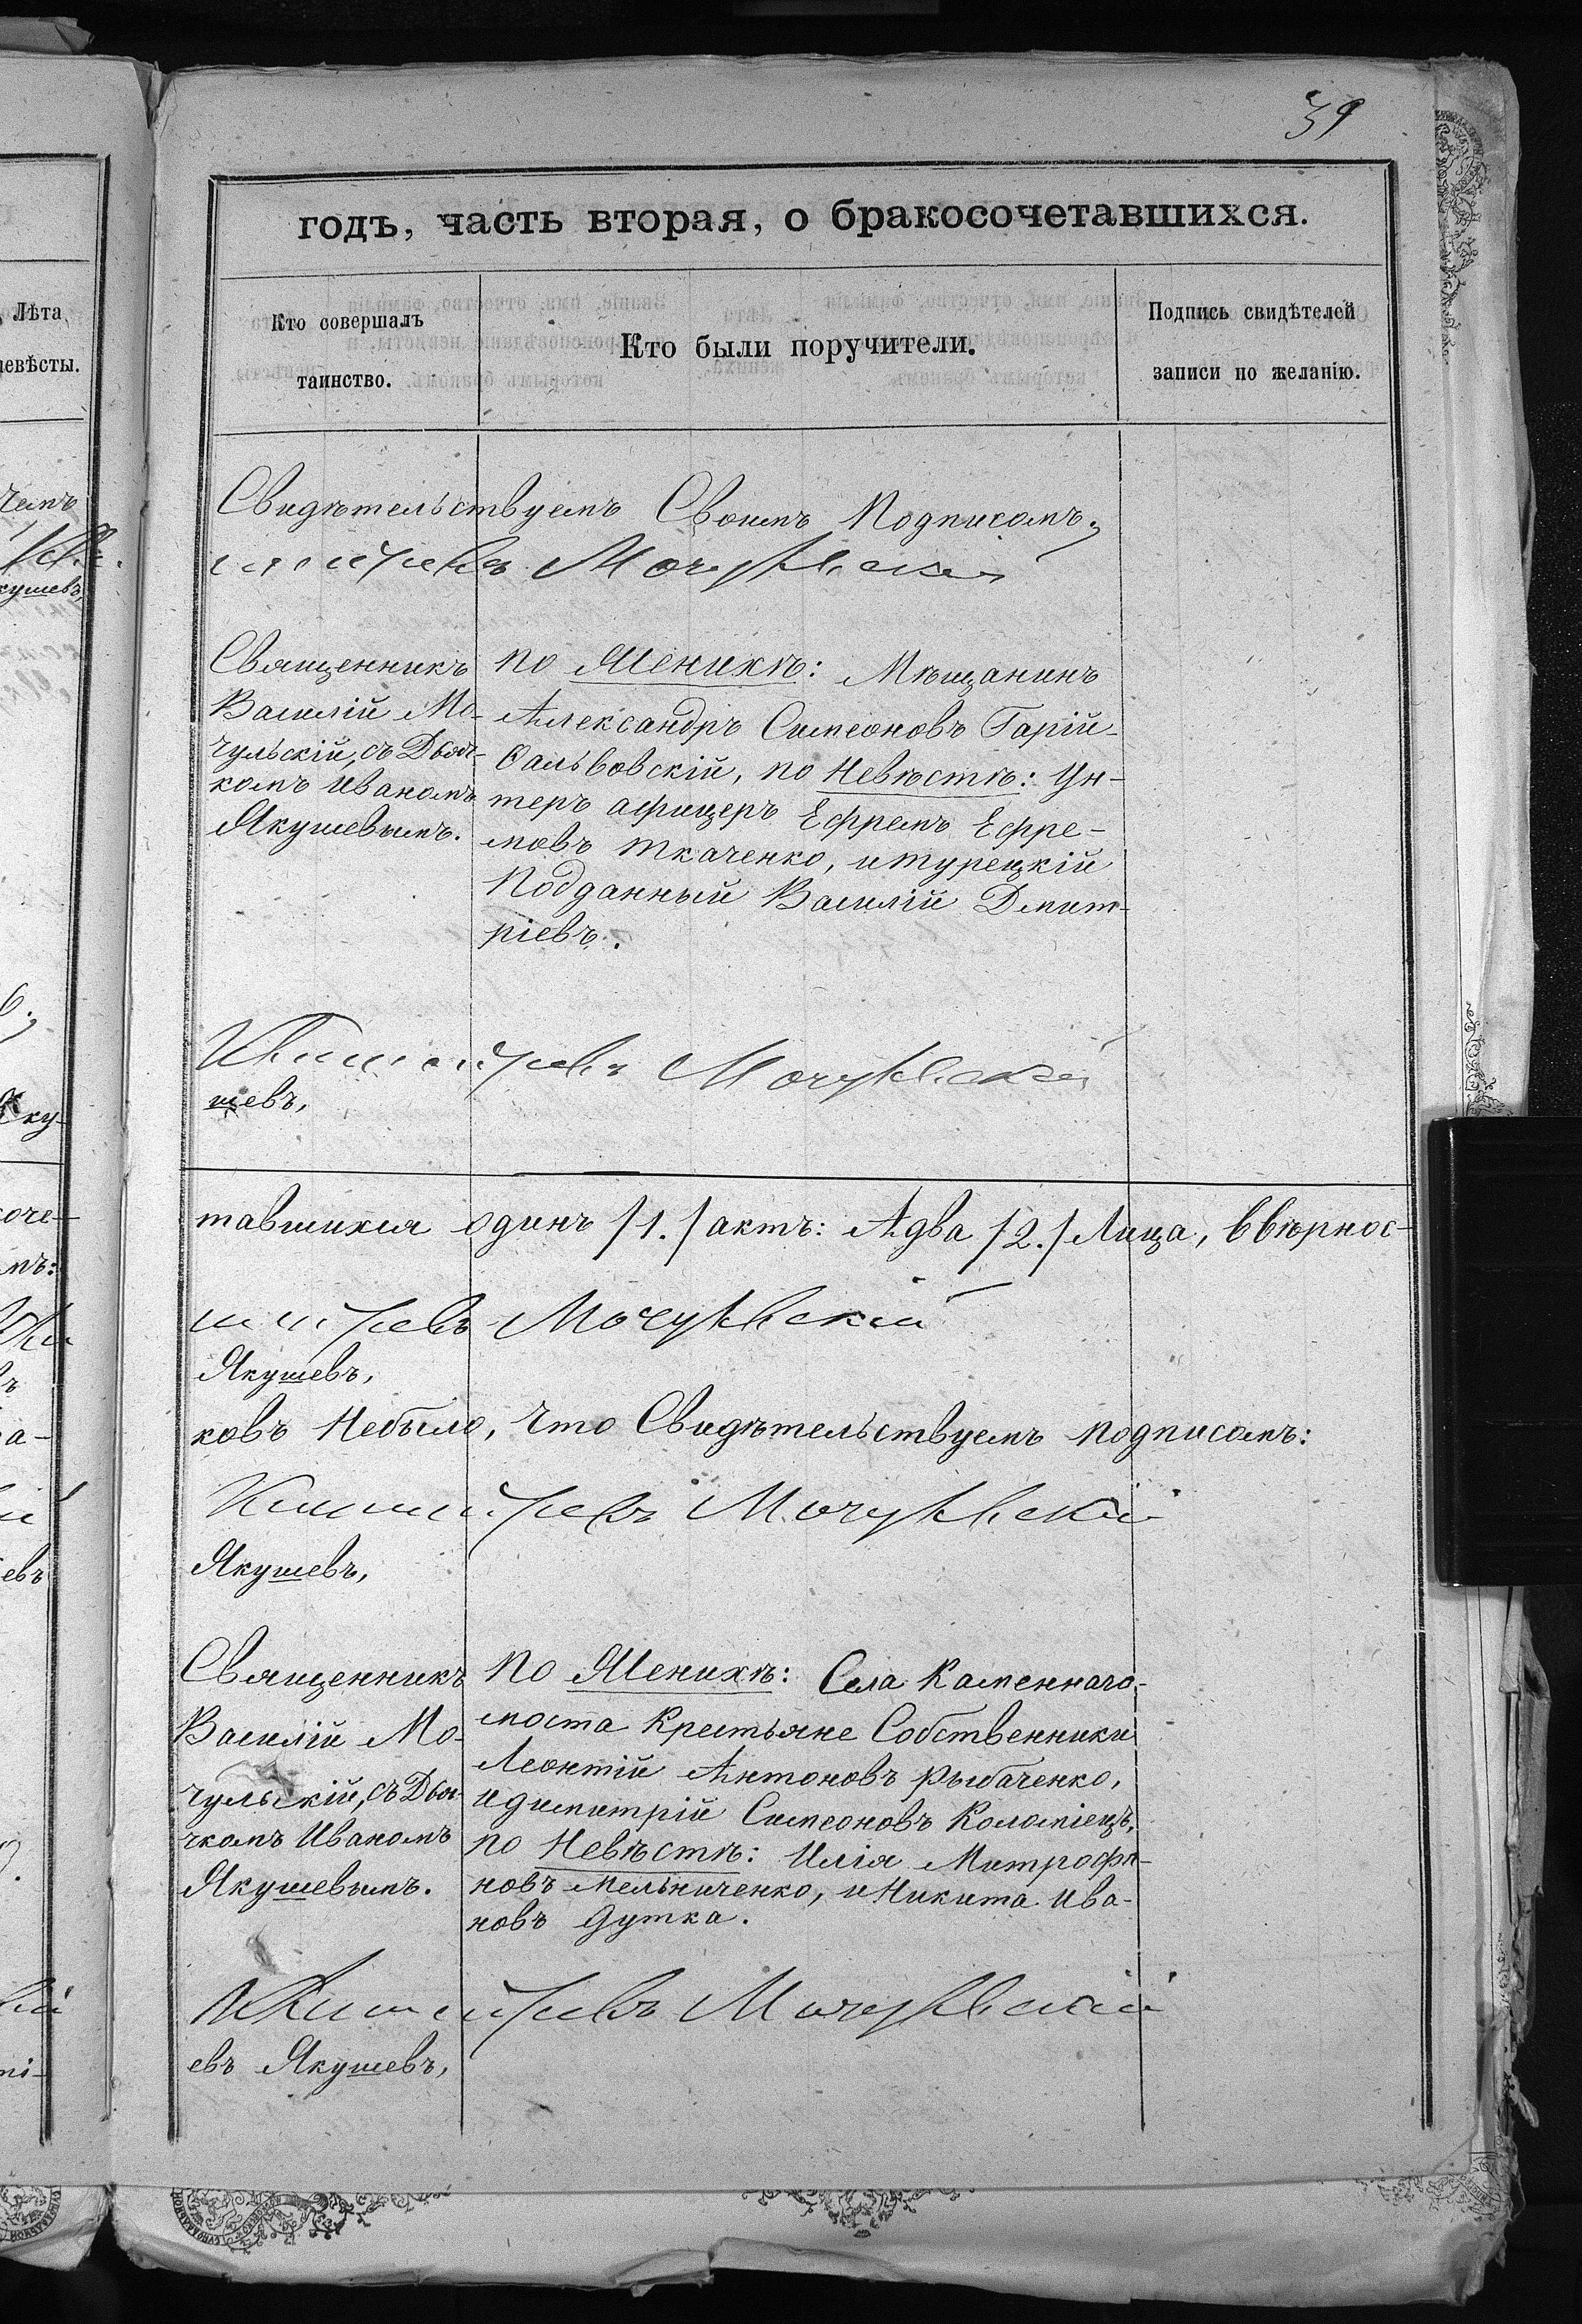 39
годъ, часть вторая, о бракосочетавшихся.
Лѣта
невѣсты.
Кто совершалъ
таинство.
Кто были поручители.
Подпись свидѣтелей
записи по желанію.
Свидѣтельствуемъ Своимъ Подписомъ;
Мочульскій
Священникъ
Василій Мо-
чульскій, съ Дьяч-
комъ Иваномъ
Якушевымъ.
по Женихѣ: Мѣщанинъ
Александръ Симеоновъ Гарій-
Сальвовскій, по Невѣстѣ: Ун-
теръ афицеръ Ефремъ Ефре-
мовъ Ткаченко, и турецкій
Подданный Василій Дмит-
ріевъ.
Мочульскій
шевъ,
тавшихся одинъ /1./ актъ: А два /2./ Лица, ввѣрнос-
Мочульскій
Якушевъ,
ковъ Небыло, Что Свидѣтельствуемъ подписомъ:
Мочульскій
Якушевъ,
Священникъ
Василій Мо-
чульскій, съ Дья-
чкомъ Иваномъ
Якушевымъ.
по Женихѣ: Села Каменнаго-
моста Крестьяне Собственники
Леонтій Антоновъ Рыбаченко,
и димитрій Симеоновъ Коломіецъ,
по Невѣстѣ: Илія Митрофа-
новъ Мельниченко, и Никита Ива-
новъ Дутка.
Мочульскій
евъ Якушевъ,